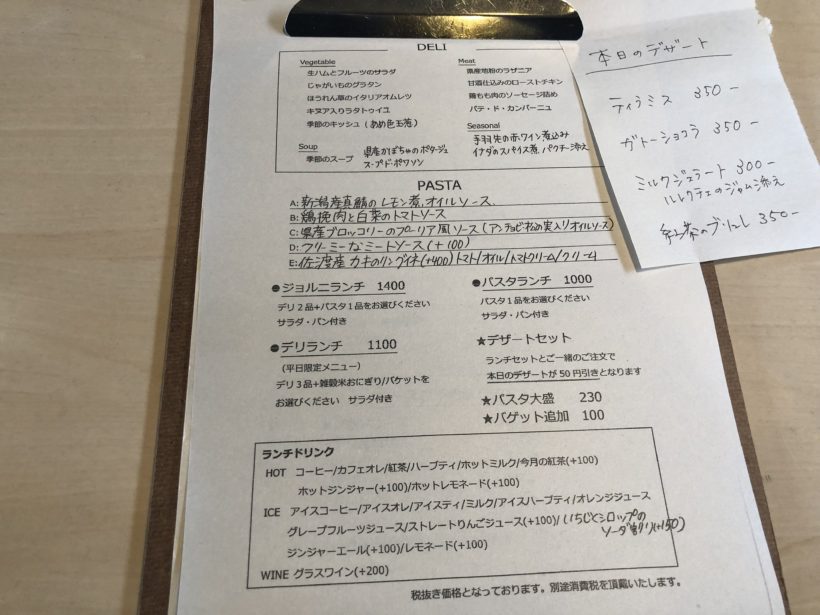 DELI
Vegetable
生ハムとフルーツのサラダ
じゃがいものグラタン
ほうれん草のイタリアオムレツ
キヌア入りラタトゥイユ
季節のキッシュ(あめ色玉葱)
Soup
季節のスープ 県産かぼちゃのポタージュ
スープ・ド・ポワソン
Meat
県産地粉のラザニア
甘酒仕込みのローストチキン
鶏もも肉のソーセージ詰め
パテ・ド・カンパーニュ
Seasonal
手羽先の赤ワイン煮込み
イナダのスパイス煮 パクチー添え
PASTA
A: 新潟産真鯛のレモン煮、オイルソース
B: 鶏挽肉と白菜のトマトソース
C: 県産ブロッコリーのプーリア風ソース(アンチョビ松の実入りオイルソース)
D: クリーミーなミートソース(+100)
E: 佐渡産カキのリングイネ(+400)トマト/オイル/トマトクリーム/クリーム
●ジョルニランチ 1400
デリ2品+パスタ1品をお選びください
サラダ・パン付き
●デリランチ 1100
(平日限定メニュー)
デリ3品+雑穀米おにぎり/バケットを
お選びください サラダ付き
●パスタランチ 1000
パスタ1品をお選びください
サラダ・パン付き
★デザートセット
ランチセットとご一緒のご注文で
本日のデザートが50円引きとなります
★パスタ大盛 230
★バゲット追加 100
ランチドリンク
HOT コーヒー/カフェオレ/紅茶/ハーブティ/ホットミルク/今月の紅茶(+100)
ホットジンジャー(+100)/ホットレモネード(+100)
ICE アイスコーヒー/アイスオレ/アイスティ/ミルク/アイスハーブティ/オレンジジュース
グレープフルーツジュース/ストレートりんごジュース(+100)/いちじくシロップの
ソーダ割り(+150)
ジンジャーエール(+100)/レモネード(+100)
WINE グラスワイン(+200)
税抜き価格となっております。別途消費税を頂戴いたします。
本日のデザート
ティラミス 350-
ガトーショコラ 350-
ミルクジェラート 300-
ルレクチェのジャム添え
紅茶のブリュレ 350-